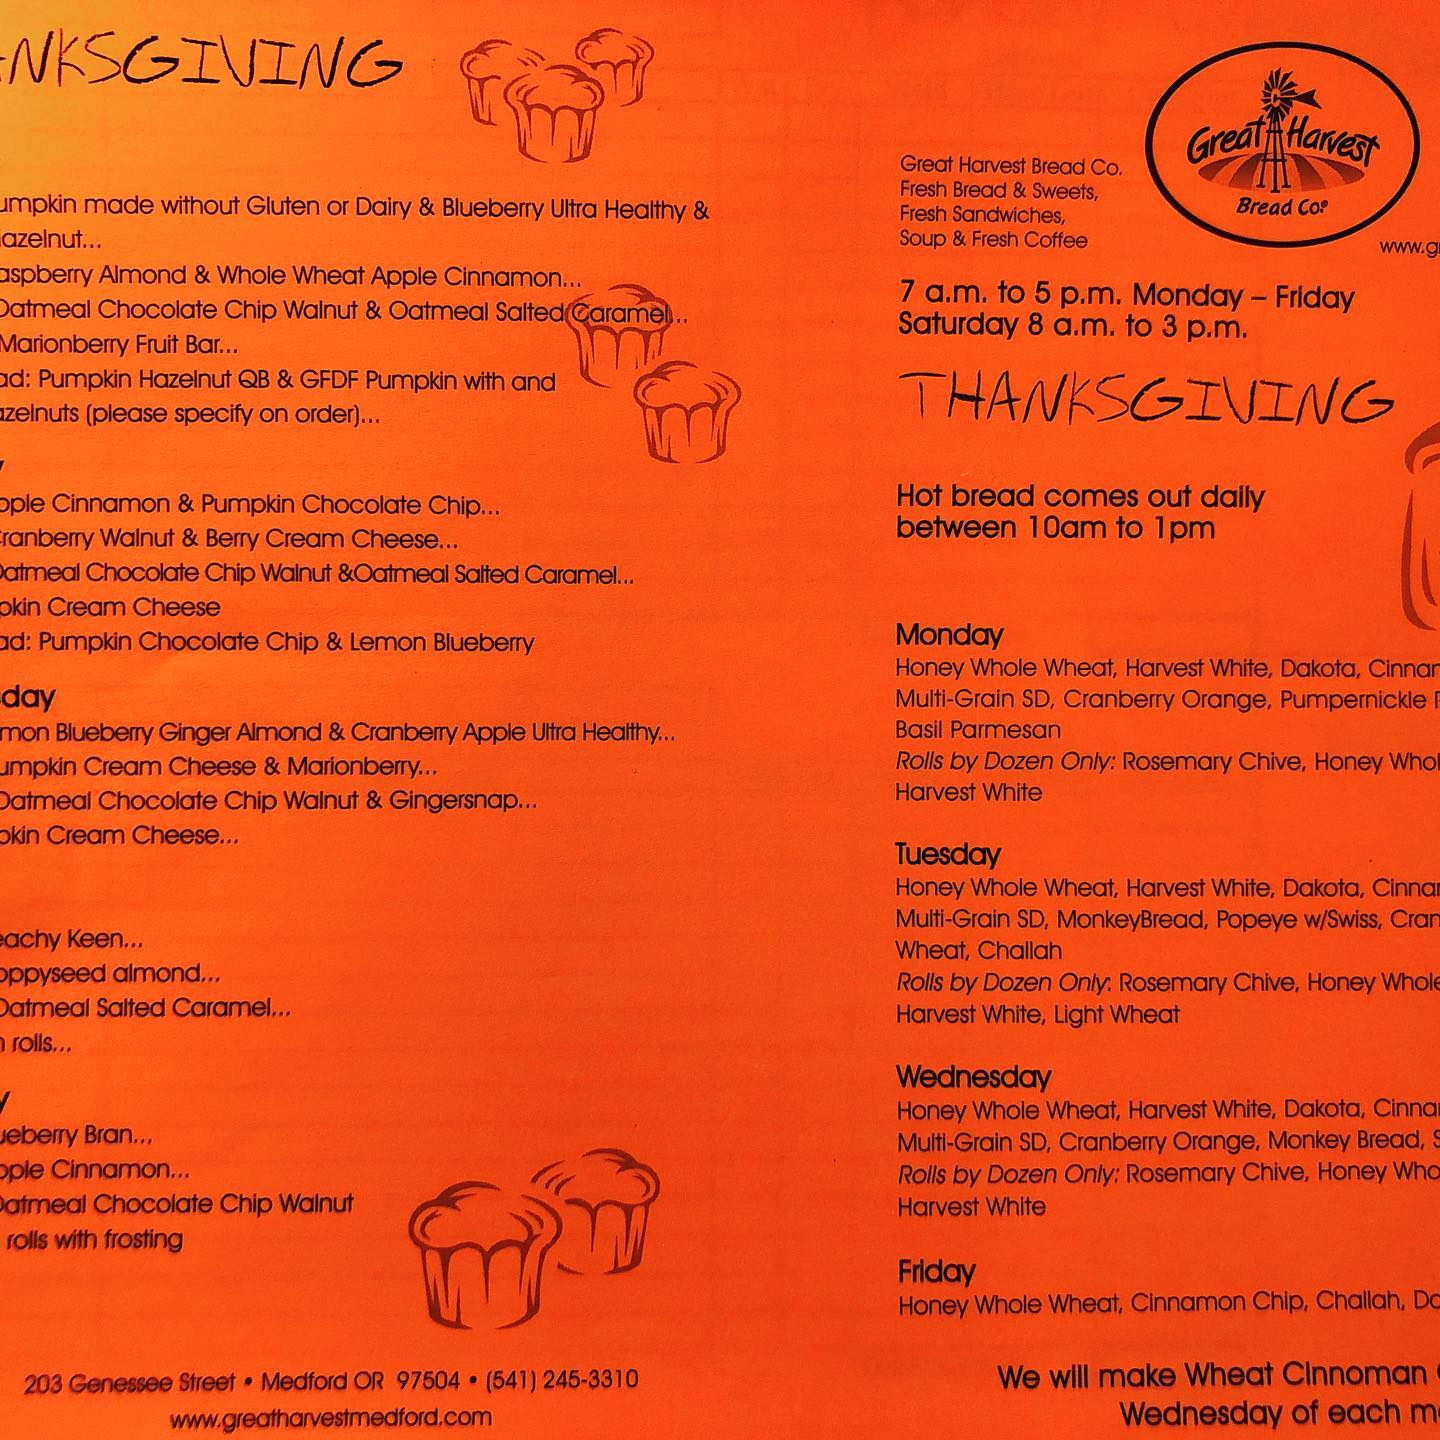 THANKSGIVING
Pumpkin made without Gluten or Dairy & Blueberry Ultra Healthy &
Hazelnut...
Raspberry Almond & Whole Wheat Apple Cinnamon...
Oatmeal Chocolate Chip Walnut & Oatmeal Salted Caramel...
Marionberry Fruit Bar...
Pumpkin Hazelnut QB & GFDF Pumpkin with and
hazelnuts (please specify on order)...
Apple Cinnamon & Pumpkin Chocolate Chip...
Cranberry Walnut & Berry Cream Cheese...
Oatmeal Chocolate Chip Walnut &Oatmeal Salted Caramel...
Cream Cheese
Pumpkin Chocolate Chip & Lemon Blueberry
Lemon Blueberry Ginger Almond & Cranberry Apple Ultra Healthy...
Pumpkin Cream Cheese & Marionberry...
Oatmeal Chocolate Chip Walnut & Gingersnap...
Cream Cheese...
Peachy Keen...
Poppyseed almond...
Oatmeal Salted Caramel...
rolls...
Blueberry Bran...
Apple Cinnamon...
Oatmeal Chocolate Chip Walnut
rolls with frosting
203 Genessee Street • Medford OR 97504 • (541) 245-3310
www.greatharvestmedford.com
Great Harvest
Bread Co.®
Great Harvest Bread Co.
Fresh Bread & Sweets,
Fresh Sandwiches,
Soup & Fresh Coffee
7 a.m. to 5 p.m. Monday – Friday
Saturday 8 a.m. to 3 p.m.
THANKSGIVING
Hot bread comes out daily
between 10am to 1pm
Monday
Honey Whole Wheat, Harvest White, Dakota,
Multi-Grain SD, Cranberry Orange, Pumpernickle
Basil Parmesan
Rolls by Dozen Only: Rosemary Chive, Honey
Harvest White
Tuesday
Honey Whole Wheat, Harvest White, Dakota,
Multi-Grain SD, MonkeyBread, Popeye w/Swiss,
Wheat, Challah
Rolls by Dozen Only: Rosemary Chive, Honey Whole
Harvest White, Light Wheat
Wednesday
Honey Whole Wheat, Harvest White, Dakota,
Multi-Grain SD, Cranberry Orange, Monkey Bread,
Rolls by Dozen Only: Rosemary Chive, Honey
Harvest White
Friday
Honey Whole Wheat, Cinnamon Chip, Challah,
We will make Wheat Cinnoman
Wednesday of each